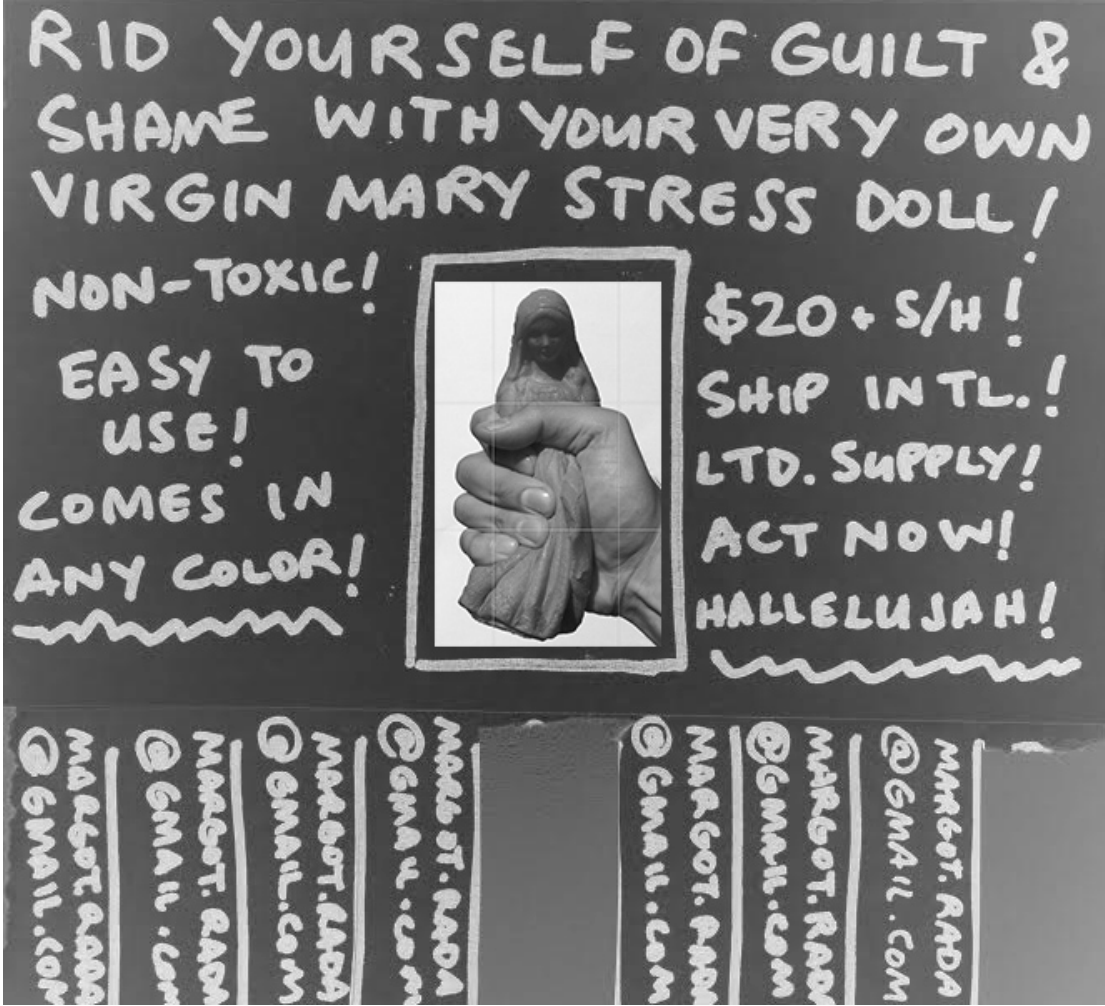 RID YOURSELF OF GUILT &
SHAME WITH YOUR VERY OWN
VIRGIN MARY STRESS DOLL!
NON-TOXIC!
EASY TO
USE!
COMES IN
ANY COLOR!
$20 + S/H!
SHIP INTL.!
LTD. SUPPLY!
ACT NOW!
HALLELUJAH!
MARGOT.RADA
@GMAIL.COM
MARGOT.RADA
@GMAIL.COM
MARGOT.RADA
@GMAIL.COM
MARGOT.RADA
@GMAIL.COM
MARGOT.RADA
@GMAIL.COM
MARGOT.RADA
@GMAIL.COM
MARGOT.RADA
@GMAIL.COM